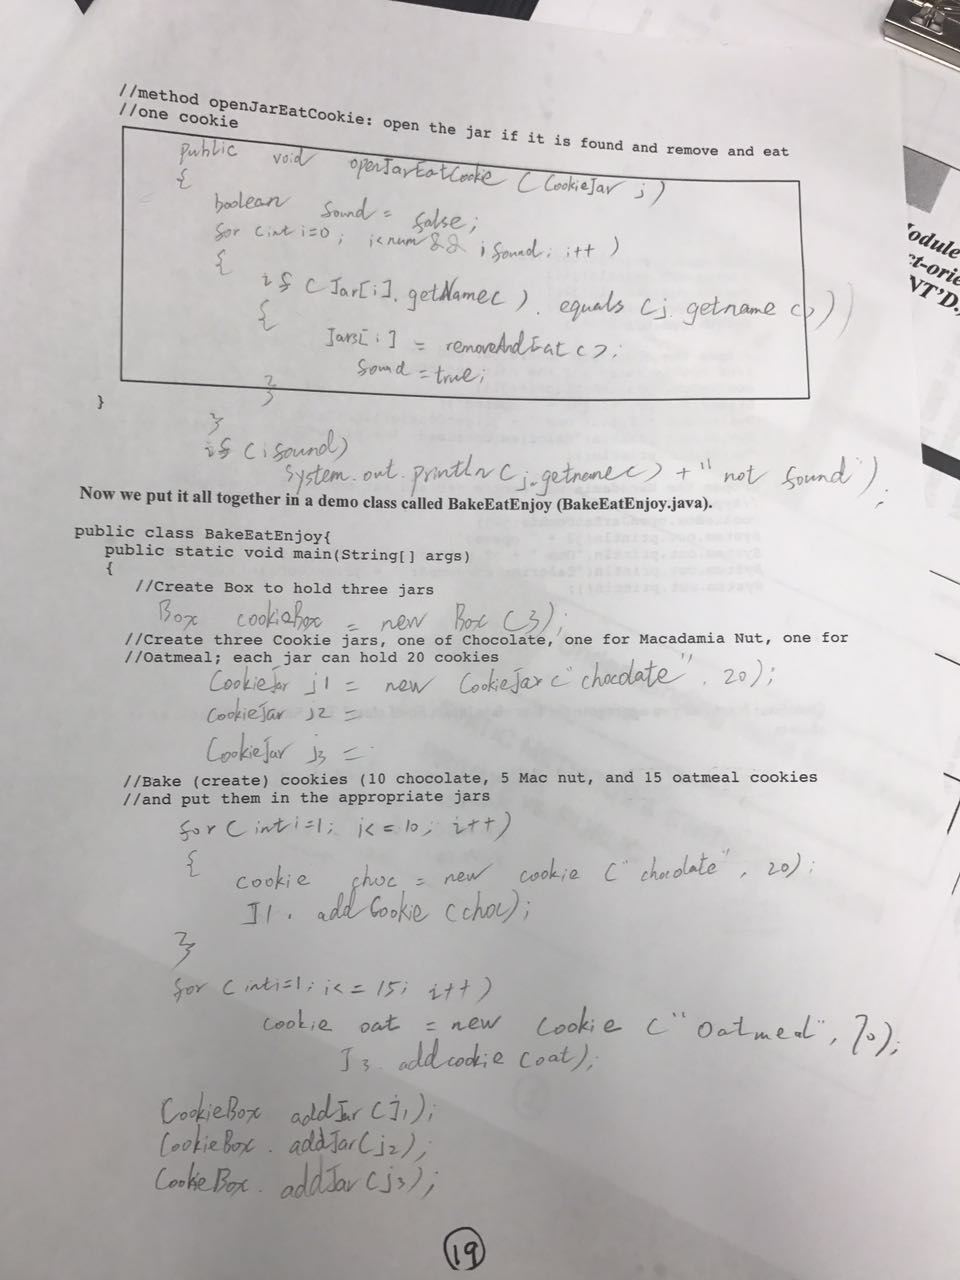 //method openJarEatCookie: open the jar if it is found and remove and eat
//one cookie
public void openJarEatCookie (CookieJar j)
{
boolean found = false;
for (int i=0; i<num && !found; i++)
{
if (Jar[i].getName().equals(j.getname()))
{
Jars[i] = removeAndEat();
found = true;
}
}
}
if (!found)
System.out.println(j.getname() + "not found");
Now we put it all together in a demo class called BakeEatEnjoy (BakeEatEnjoy.java).
public class BakeEatEnjoy{
public static void main(String[] args)
{
//Create Box to hold three jars
Box cookieBox = new Box (3);
//Create three Cookie jars, one of Chocolate, one for Macadamia Nut, one for
//Oatmeal; each jar can hold 20 cookies
CookieJar j1 = new CookieJar("chocolate", 20);
CookieJar j2 =
CookieJar j3 =
//Bake (create) cookies (10 chocolate, 5 Mac nut, and 15 oatmeal cookies
//and put them in the appropriate jars
for (int i=1; i<=10; i++)
{
cookie choc = new cookie ("chocolate", 20);
J1. addCookie (choc);
}
for (int i=1; i<=15; i++)
cookie oat = new Cookie ("Oatmeal", 70);
J3. addcookie (oat);
CookieBox addJar (j1);
CookieBox. addJar(j2);
CookieBox. addJar (j3);
19
odule
ct-orie
NT'D.